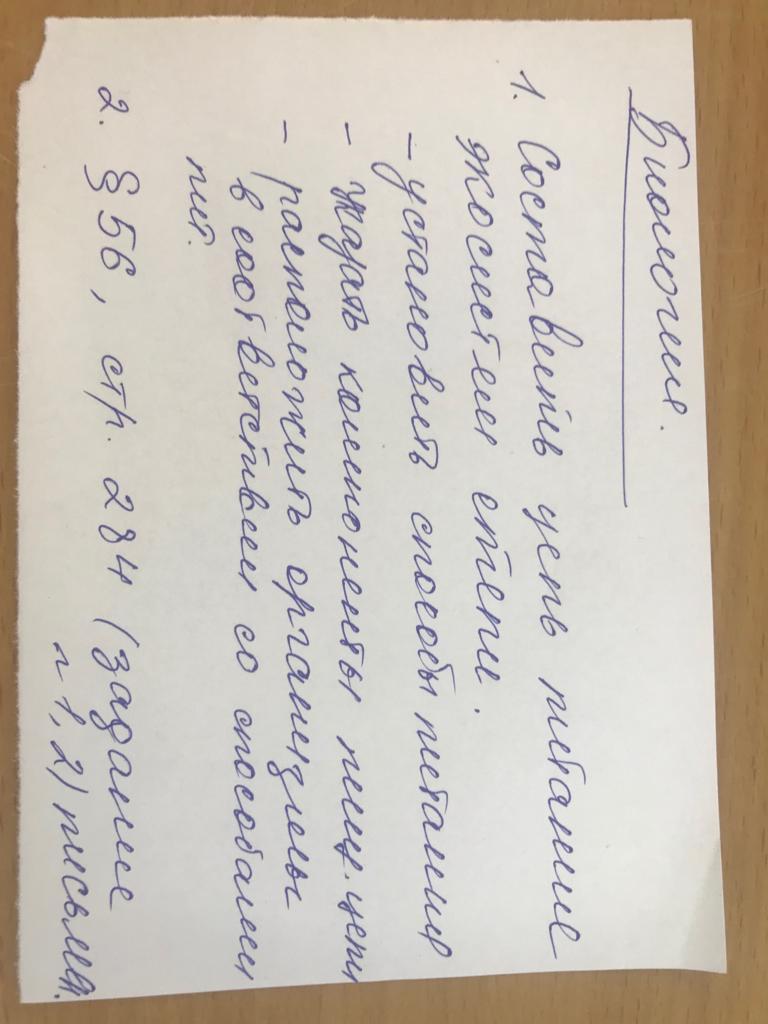 Биология.
1. Составить цепь питания
экосистем степи.
- установить способы питания
- указать компоненты пищ. цепи
- расположить организмы
в соответствии со способами
пит.
2. § 56, стр. 284 (задание
№ 1, 2) письмен.